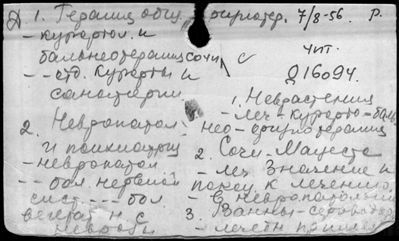 Д 1. Терапия общ. - физиотер. 7/8-56. Р.
- курортол. и
бальнеотерапия Сочи
чит.
- - отд. курорты и
Д16094.
санатории
1. Неврастения
- леч - курорто-баль
2. Невропатол-
нео-физиотерапия
и психиатрия
2. Сочи-Мацеста
- невропатол.
- леч. значение и
- - бол. нервной
показ. к лечению
сист. - - бол.
- в невропатологии
вегетат. н. с.
3. Ванны - сероводор
неврозы
- лечебн. примен